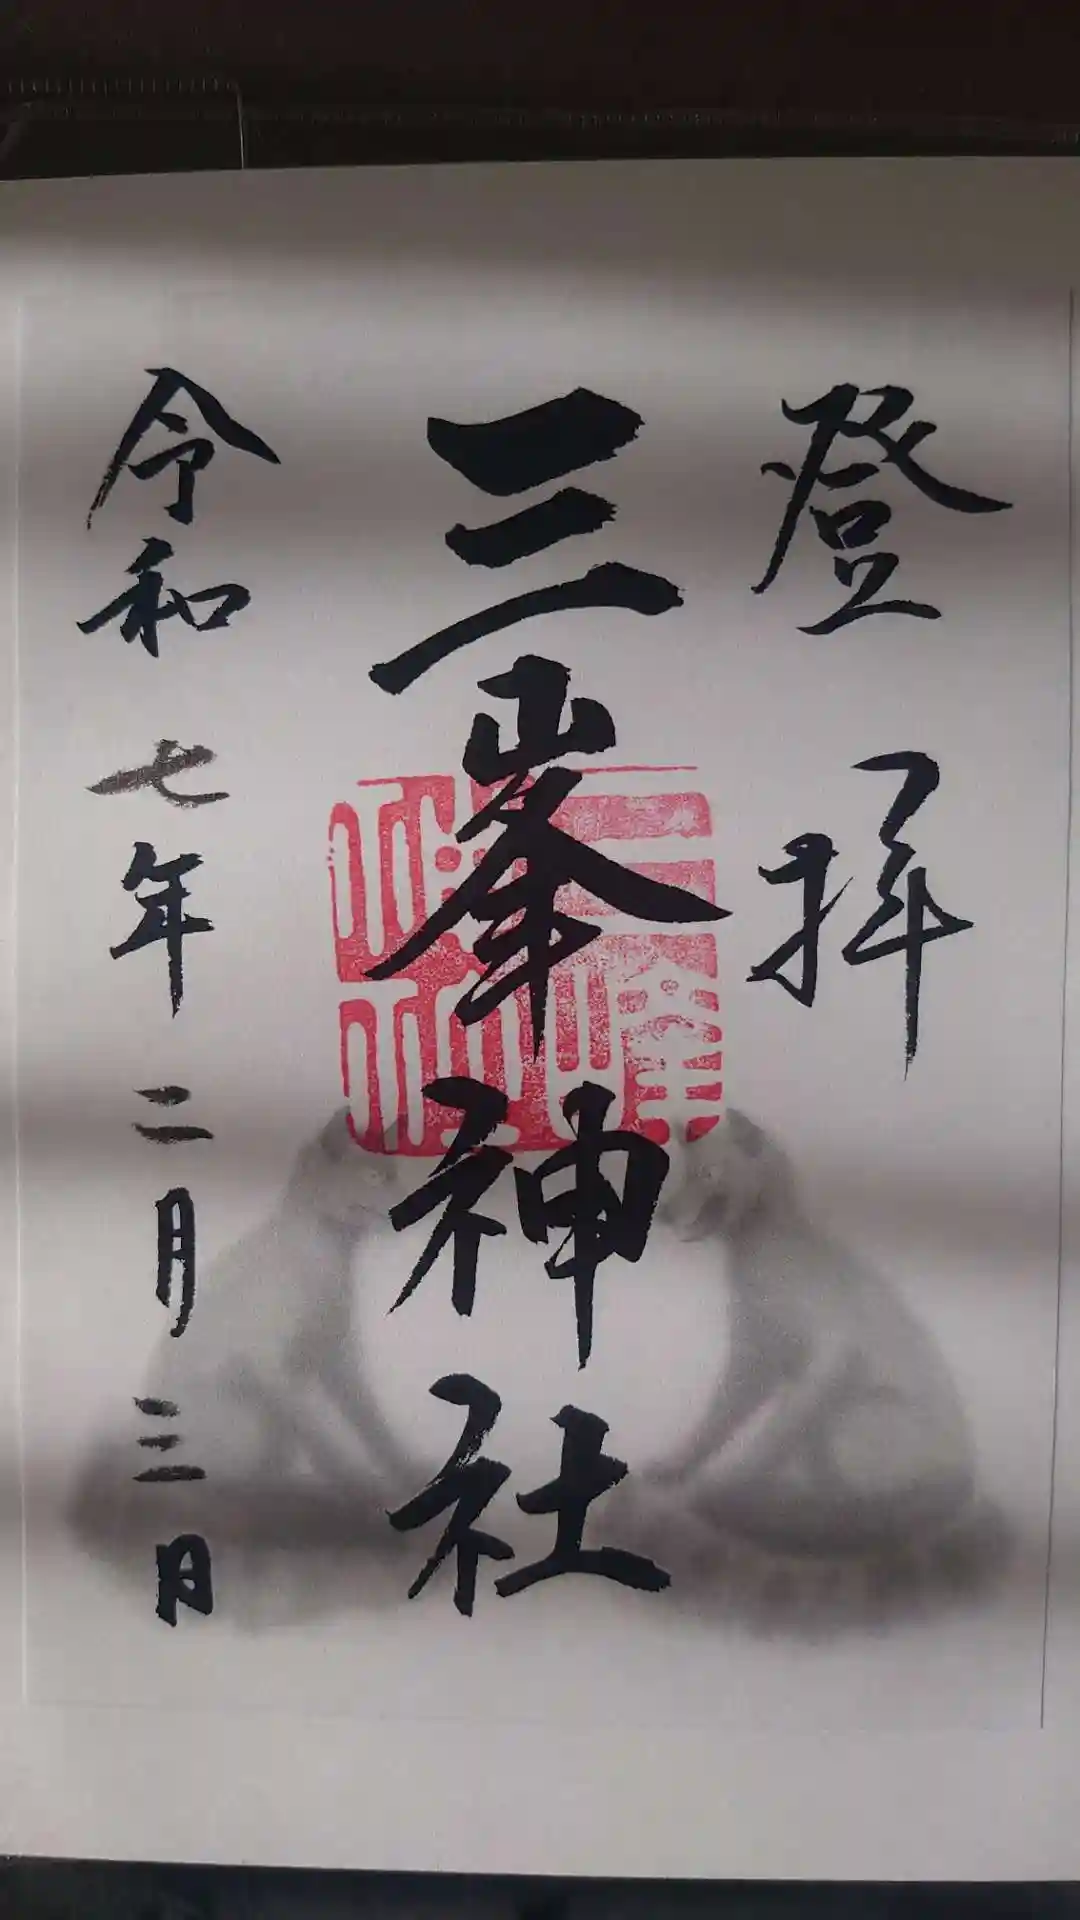 登拝
三峯神社
令和七年二月三日
三峰神社